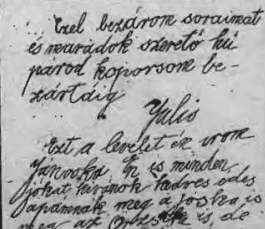 Ezel bezárom soraimat
és maradok szerető hű
párod koporsom be-
zártáig
Yulis
Ezt a levelet én irom
Jánoska. Én is minden
jókat kivánok kedves édes
apámnak meg a Joska is
meg az is de